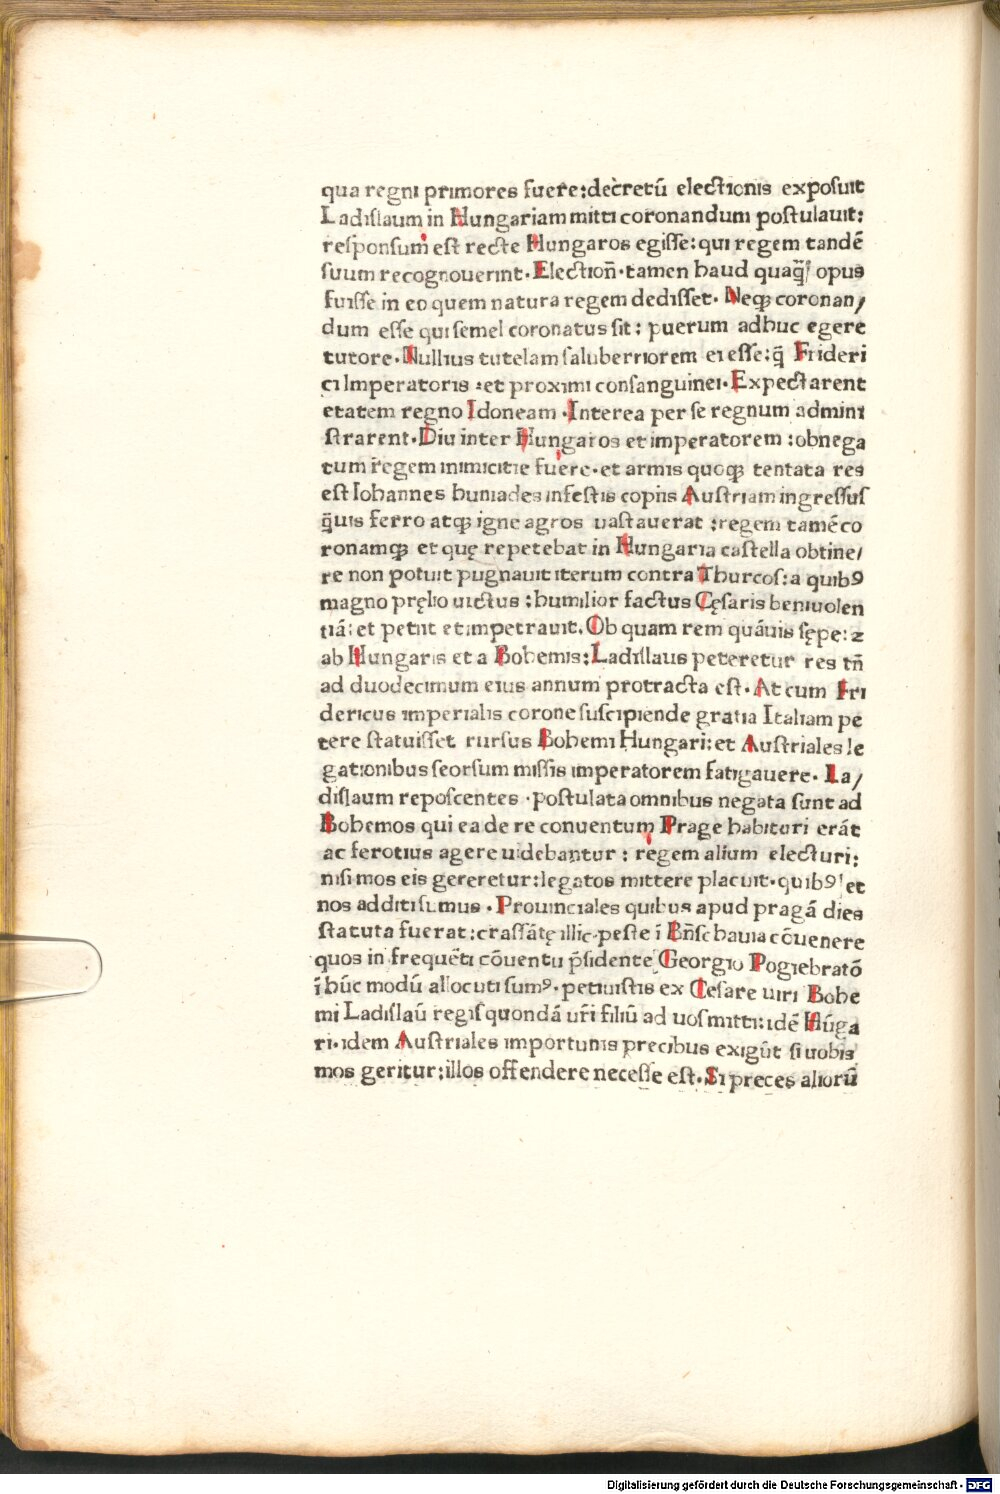 qua regni primores fuere:decretū electionis exposuit
Ladislaum in Hungariam mitti coronandum postulauit:
responsum est recte Hungaros egisse:qui regem tandē
suum recognouerint. Election̄.tamen haud quaq̄ȝ opus
fuisse in eo quem natura regem dedisset. Neqȝ coronan/
dum esse qui semel coronatus sit: puerum adhuc egere
tutore. Nullius tutelam saluberriorem ei esse:q̄ Frideri
ci Imperatoris :et proximi consanguinei. Expectarent
etatem regno Idoneam .Interea per se regnum admini
strarent. Diu inter Hungaros et imperatorem :obnega
tum regem inimicitie fuere.et armis quoqȝ tentata res
est Iohannes huniades infestis copiis Austriam ingressus
q̄uis ferro atqȝ igne agros uastauerat :regem tamē co
ronamqȝ et quę repetebat in Hungaria castella obtine/
re non potuit pugnauit iterum contra Thurcos:a quibꝰ
magno pręlio uictus :humilior factus Cęsaris beniuolen
tiā:et petiit et impetrauit. Ob quam rem quāuis sępe:⁊
ab Hungaris et a Bohemis:Ladislaus peteretur res tn̄
ad duodecimum eius annum protracta est. At cum Fri
dericus imperialis corone suscipiende gratia Italiam pe
tere statuisset rursus Bohemi Hungari:et Australes le
gationibus seorsum missis imperatorem fatigauere. La/
dislaum reposcentes .postulata omnibus negata sunt ad
Bohemos qui ea de re conuentum Prage habituri erāt
ac ferotius agere uidebantur : regem alium electuri:
nisi mos eis gereretur:legatos mittere placuit.quibꝰ et
nos additi sumus . Prouinciales quibus apud pragā dies
statuta fuerat:crassātę illic.peste ī Bn̄schauia cōuenere
quos in frequēti cōuentu p̄sidente Georgio Pogiebratō
ī hūc modū allocuti sumꝰ. petiuistis ex Cesare uiri Bohe
mi Ladislaū regis quondā ur̄i filiū ad uos mitti:idē Hūga
ri.idem Australes importunis precibus exigūt si uobis
mos geritur:illos offendere necesse est. Si preces aliorū
Digitalisierung gefördert durch die Deutsche Forschungsgemeinschaft - DFG